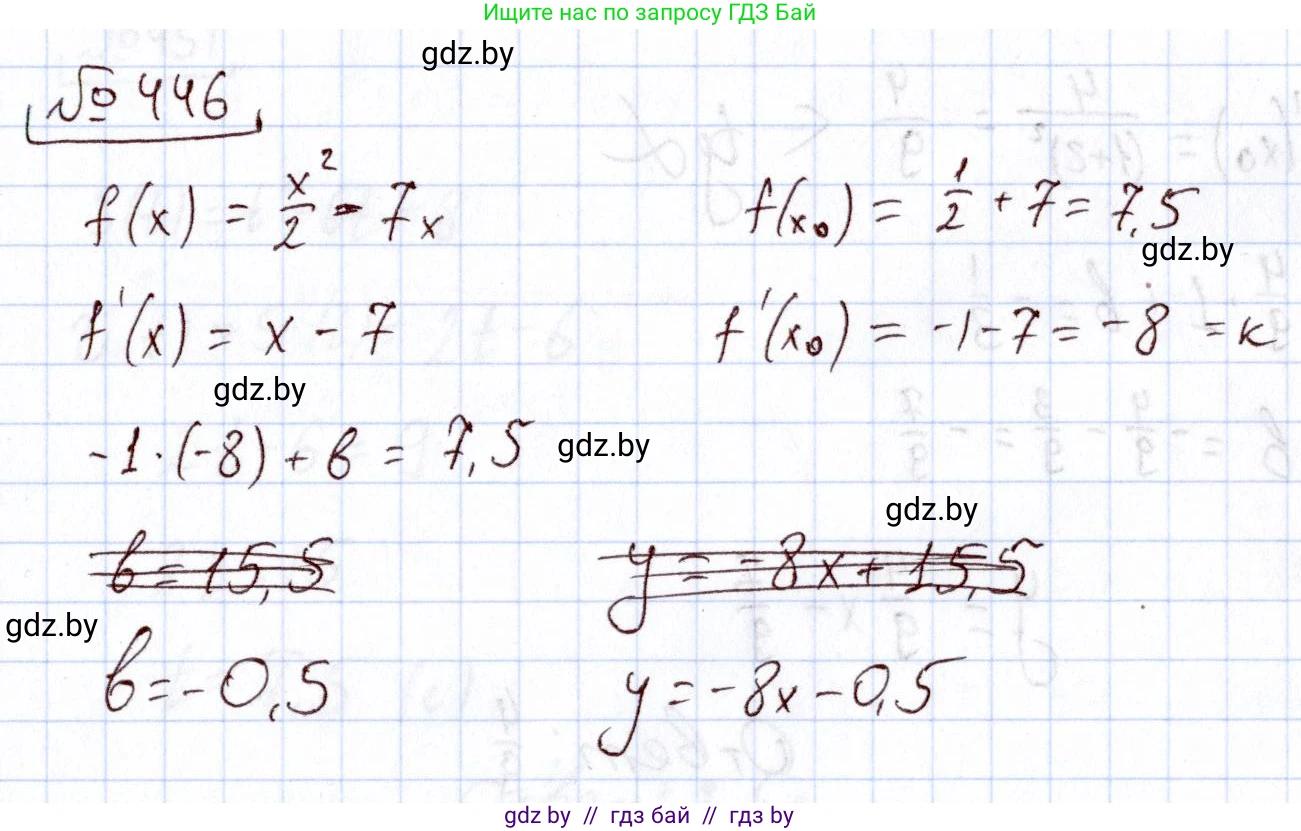 Ищите нас по запросу ГДЗ Бай
gdz.by
№ 446
f(x) = x²/2 - 7x
f(x₀) = 1/2 + 7 = 7,5
gdz.by
f'(x) = x - 7
f'(x₀) = -1-7 = -8 = к
gdz.by
-1·(-8) + в = 7,5
gdz.by
gdz.by
в = 15,5
y = -8x + 15,5
gdz.by
в = -0,5
y = -8x - 0,5
gdz by // гдз бай // gdz by